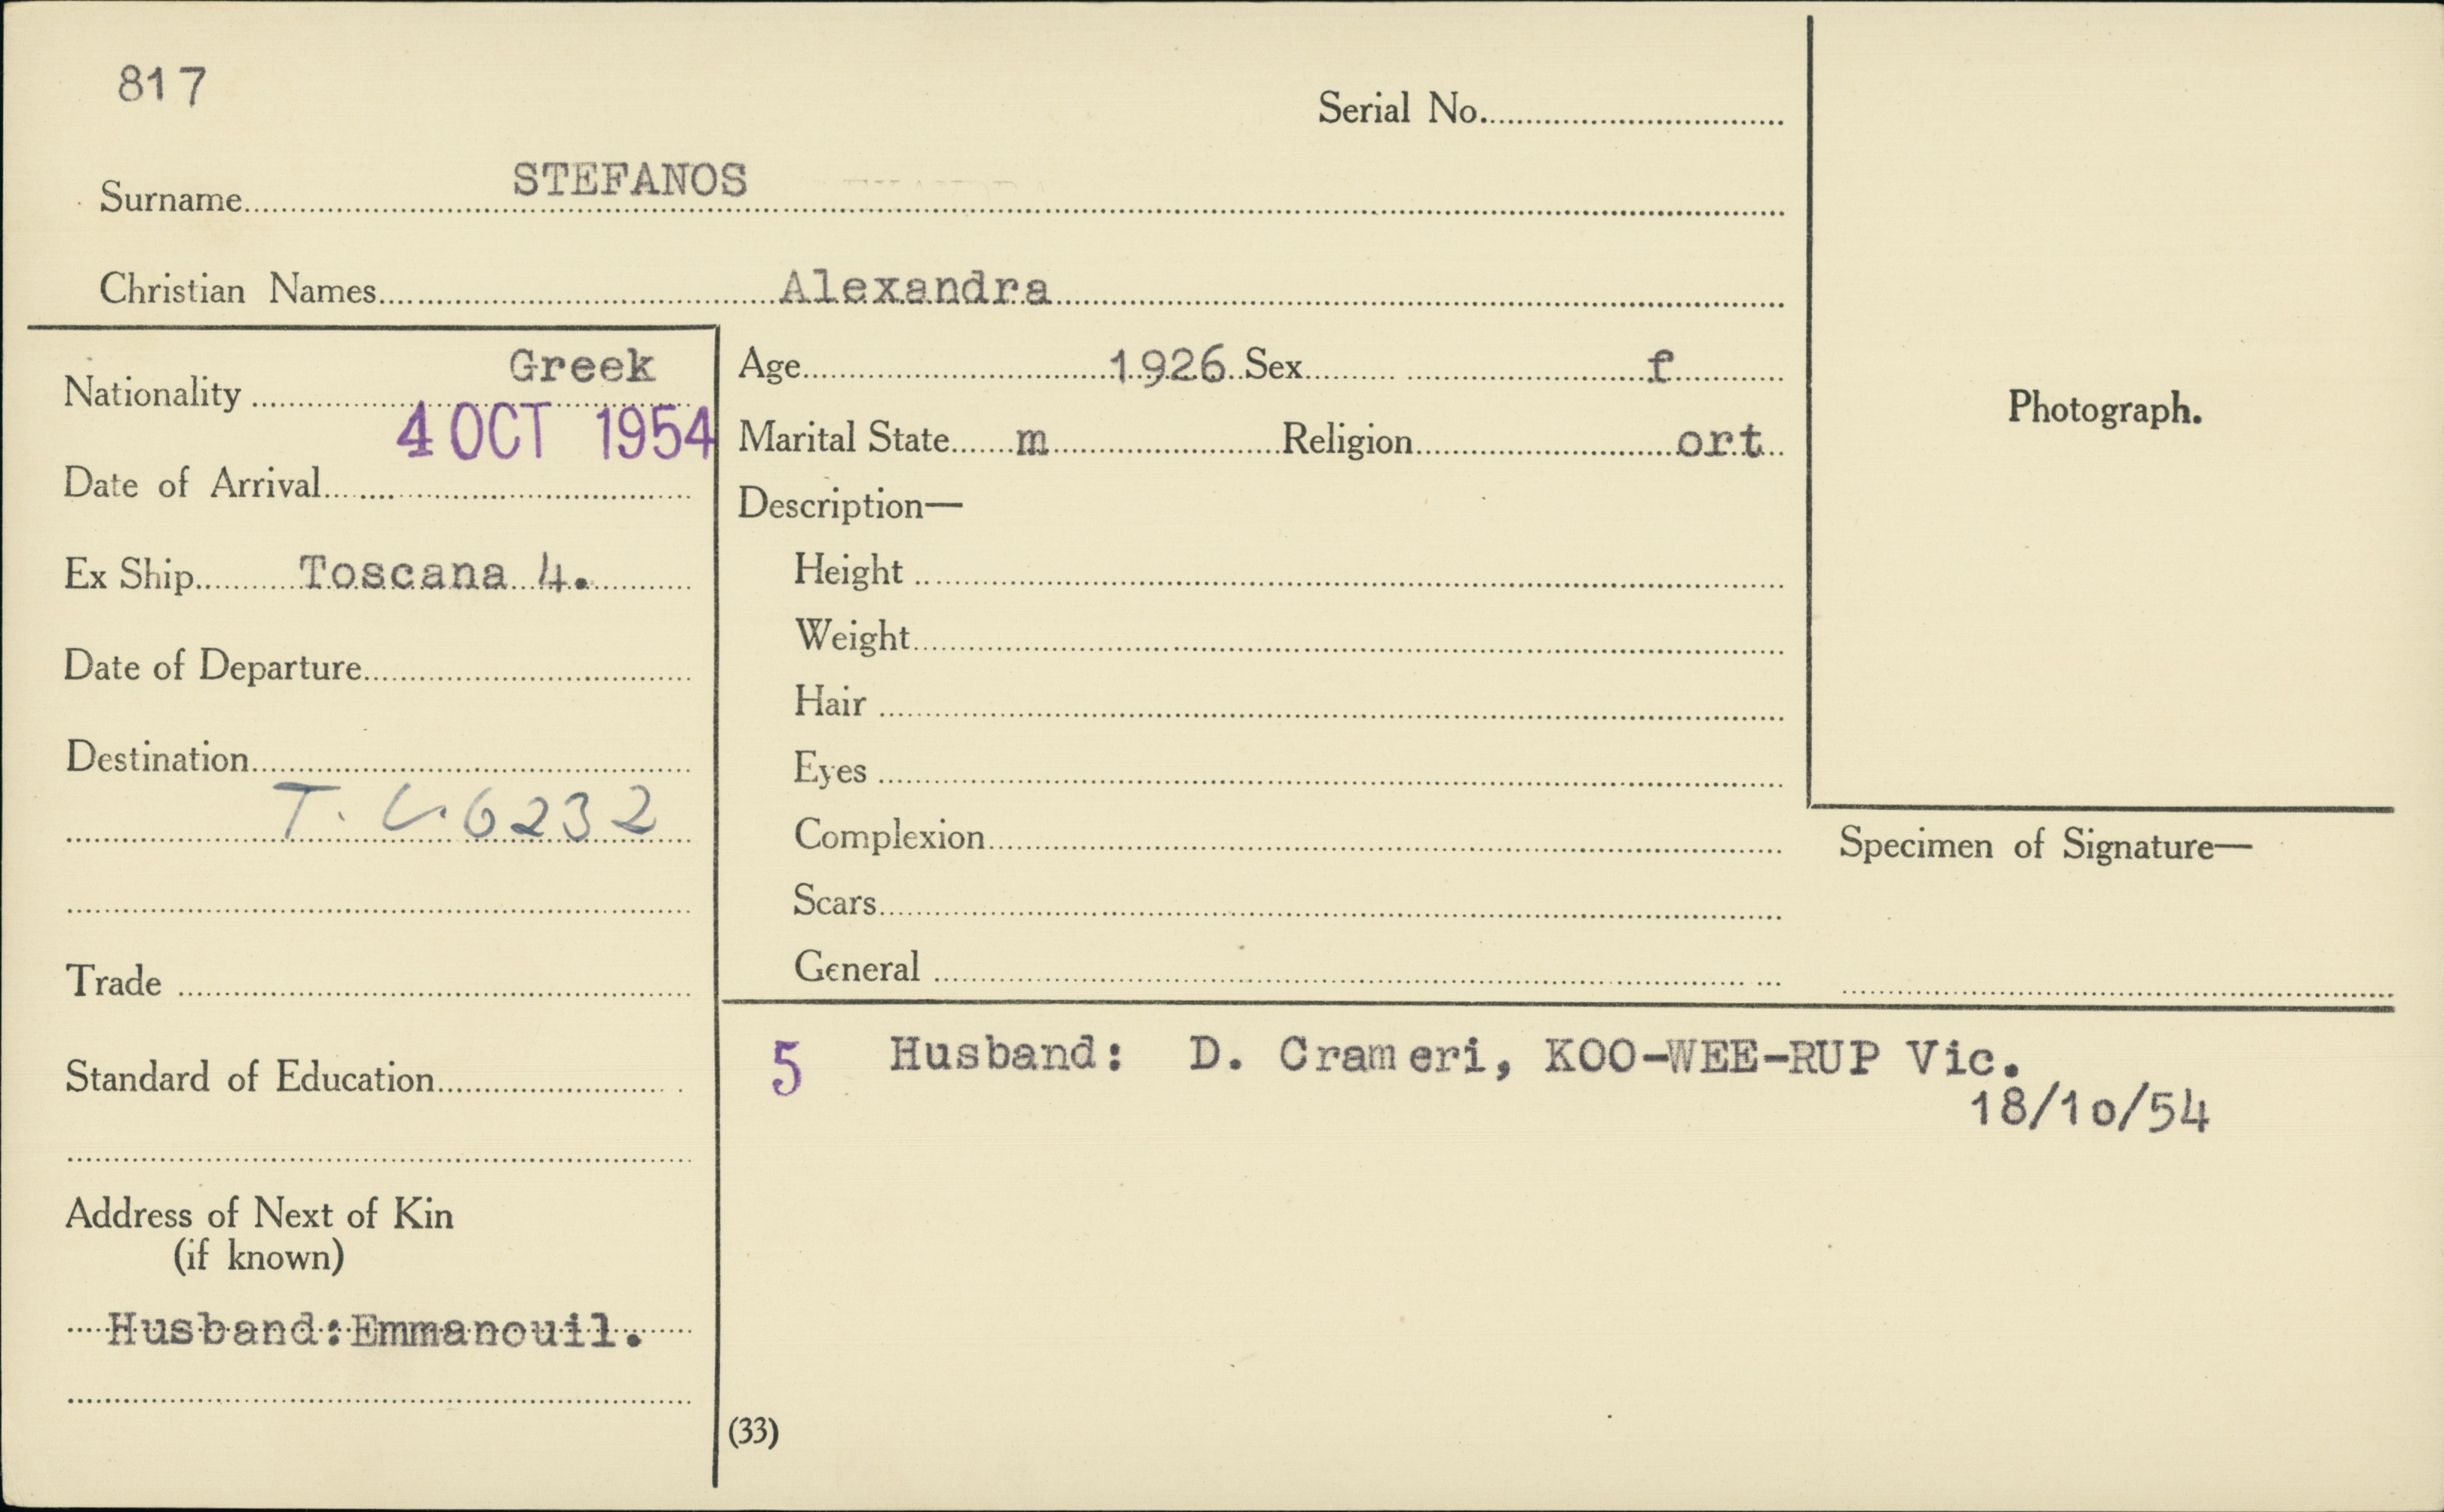 817
Serial No.
Surname STEFANOS
Christian Names Alexandra
Nationality Greek
4 OCT 1954
Date of Arrival
Ex Ship Toscana 4.
Date of Departure
Destination
T. 6232
Trade
Standard of Education
Address of Next of Kin
(if known)
Husband: Emmanouil.
Age 1926 Sex f
Marital State m Religion ort
Description—
Height
Weight
Hair
Eyes
Complexion
Scars
General
Photograph.
Specimen of Signature—
5 Husband: D. Crameri, KOO-WEE-RUP Vic.
18/10/54
(33)